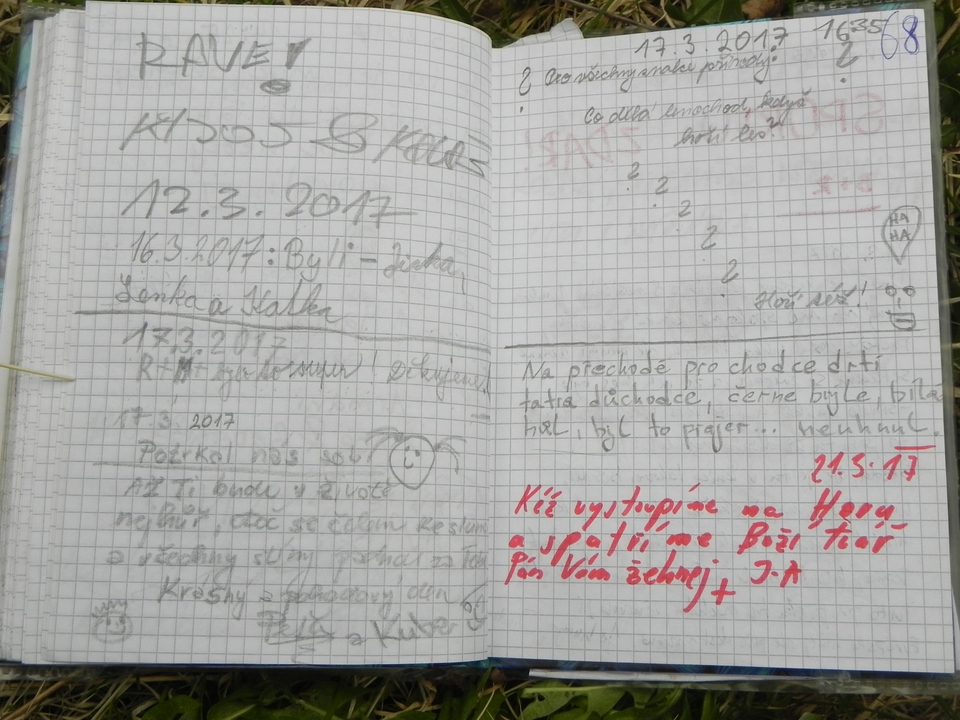 RAVE!
12.3.2017
16.3.2017: Byli - Jirka,
Lenka a Katka
17.3.2017
R+M+
17.3.2017
Potrkal nás sob!
Až ti bude v životě
nejhůř, otoč se čelem ke slunci
a všechny stíny
Krásný a pohodový den
a Kuba
17.3.2017 16:35 68
Pro všechny znalce přírody:
Co dělá lenochod, když
hoří les?
? ? ? ? ?
HA
HA
Hoří též!
Na přechodě pro chodce drtí
tatra důchodce, černé brýle, bílá
hůl, byl to frajer... neuhnul.
21.3.17
Kéž vystoupíme na Horu
a spatříme Boží tvář
Pán Vám žehnej, J-A